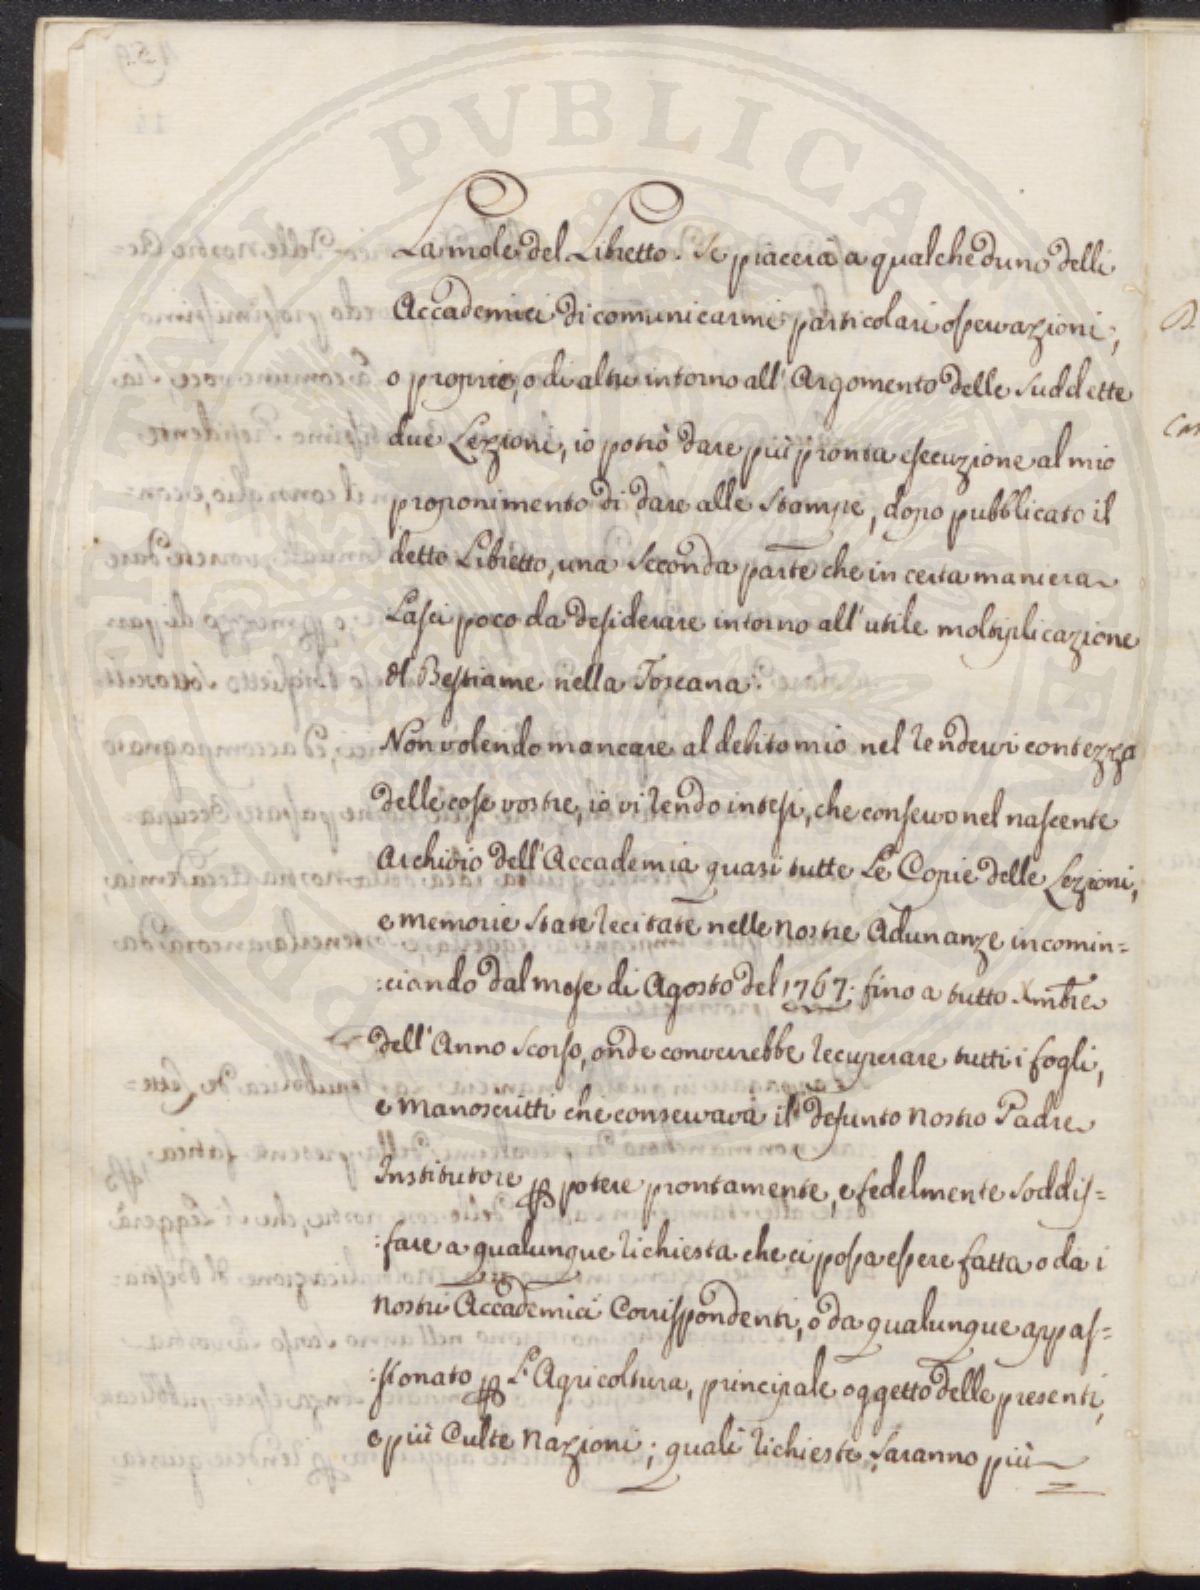 La mole del Libretto. Se piacerà a qualcheduno delli
Accademici di comunicarmi particolari osservazioni,
o proprie, o di altri intorno all'Argomento delle suddette
due Lezioni, io potrò dare più pronta esecuzione al mio
proponimento di dare alle stampe, dopo pubblicato il
detto Libretto, una seconda parte che in certa maniera
Lasci poco da desiderare intorno all'utile moltiplicazione
del Bestiame nella Toscana.
Non volendo mancare al debito mio nel rendervi contezza
delle cose vostre, io vi rendo intesi, che conservo nel nascente
Archivio dell'Accademia quasi tutte Le Copie delle Lezioni,
e memorie state recitate nelle nostre Adunanze incomin=
:ciando dal mese di Agosto del 1767: fino a tutto Xmbre
dell'Anno scorso, onde converrebbe recuperare tutti i fogli,
e manoscritti che conservava il defunto nostro Padre
Institutore p potere prontamente, e fedelmente soddis=
:fare a qualunque richiesta che ci possa essere fatta o da i
nostri Accademici Corrispondenti, o da qualunque appas=
:sionato p L'Agricoltura, principale oggetto delle presenti,
e più Culte Nazioni; quali richieste saranno più
PUBLICAE UTILITATI PROSPERITATI